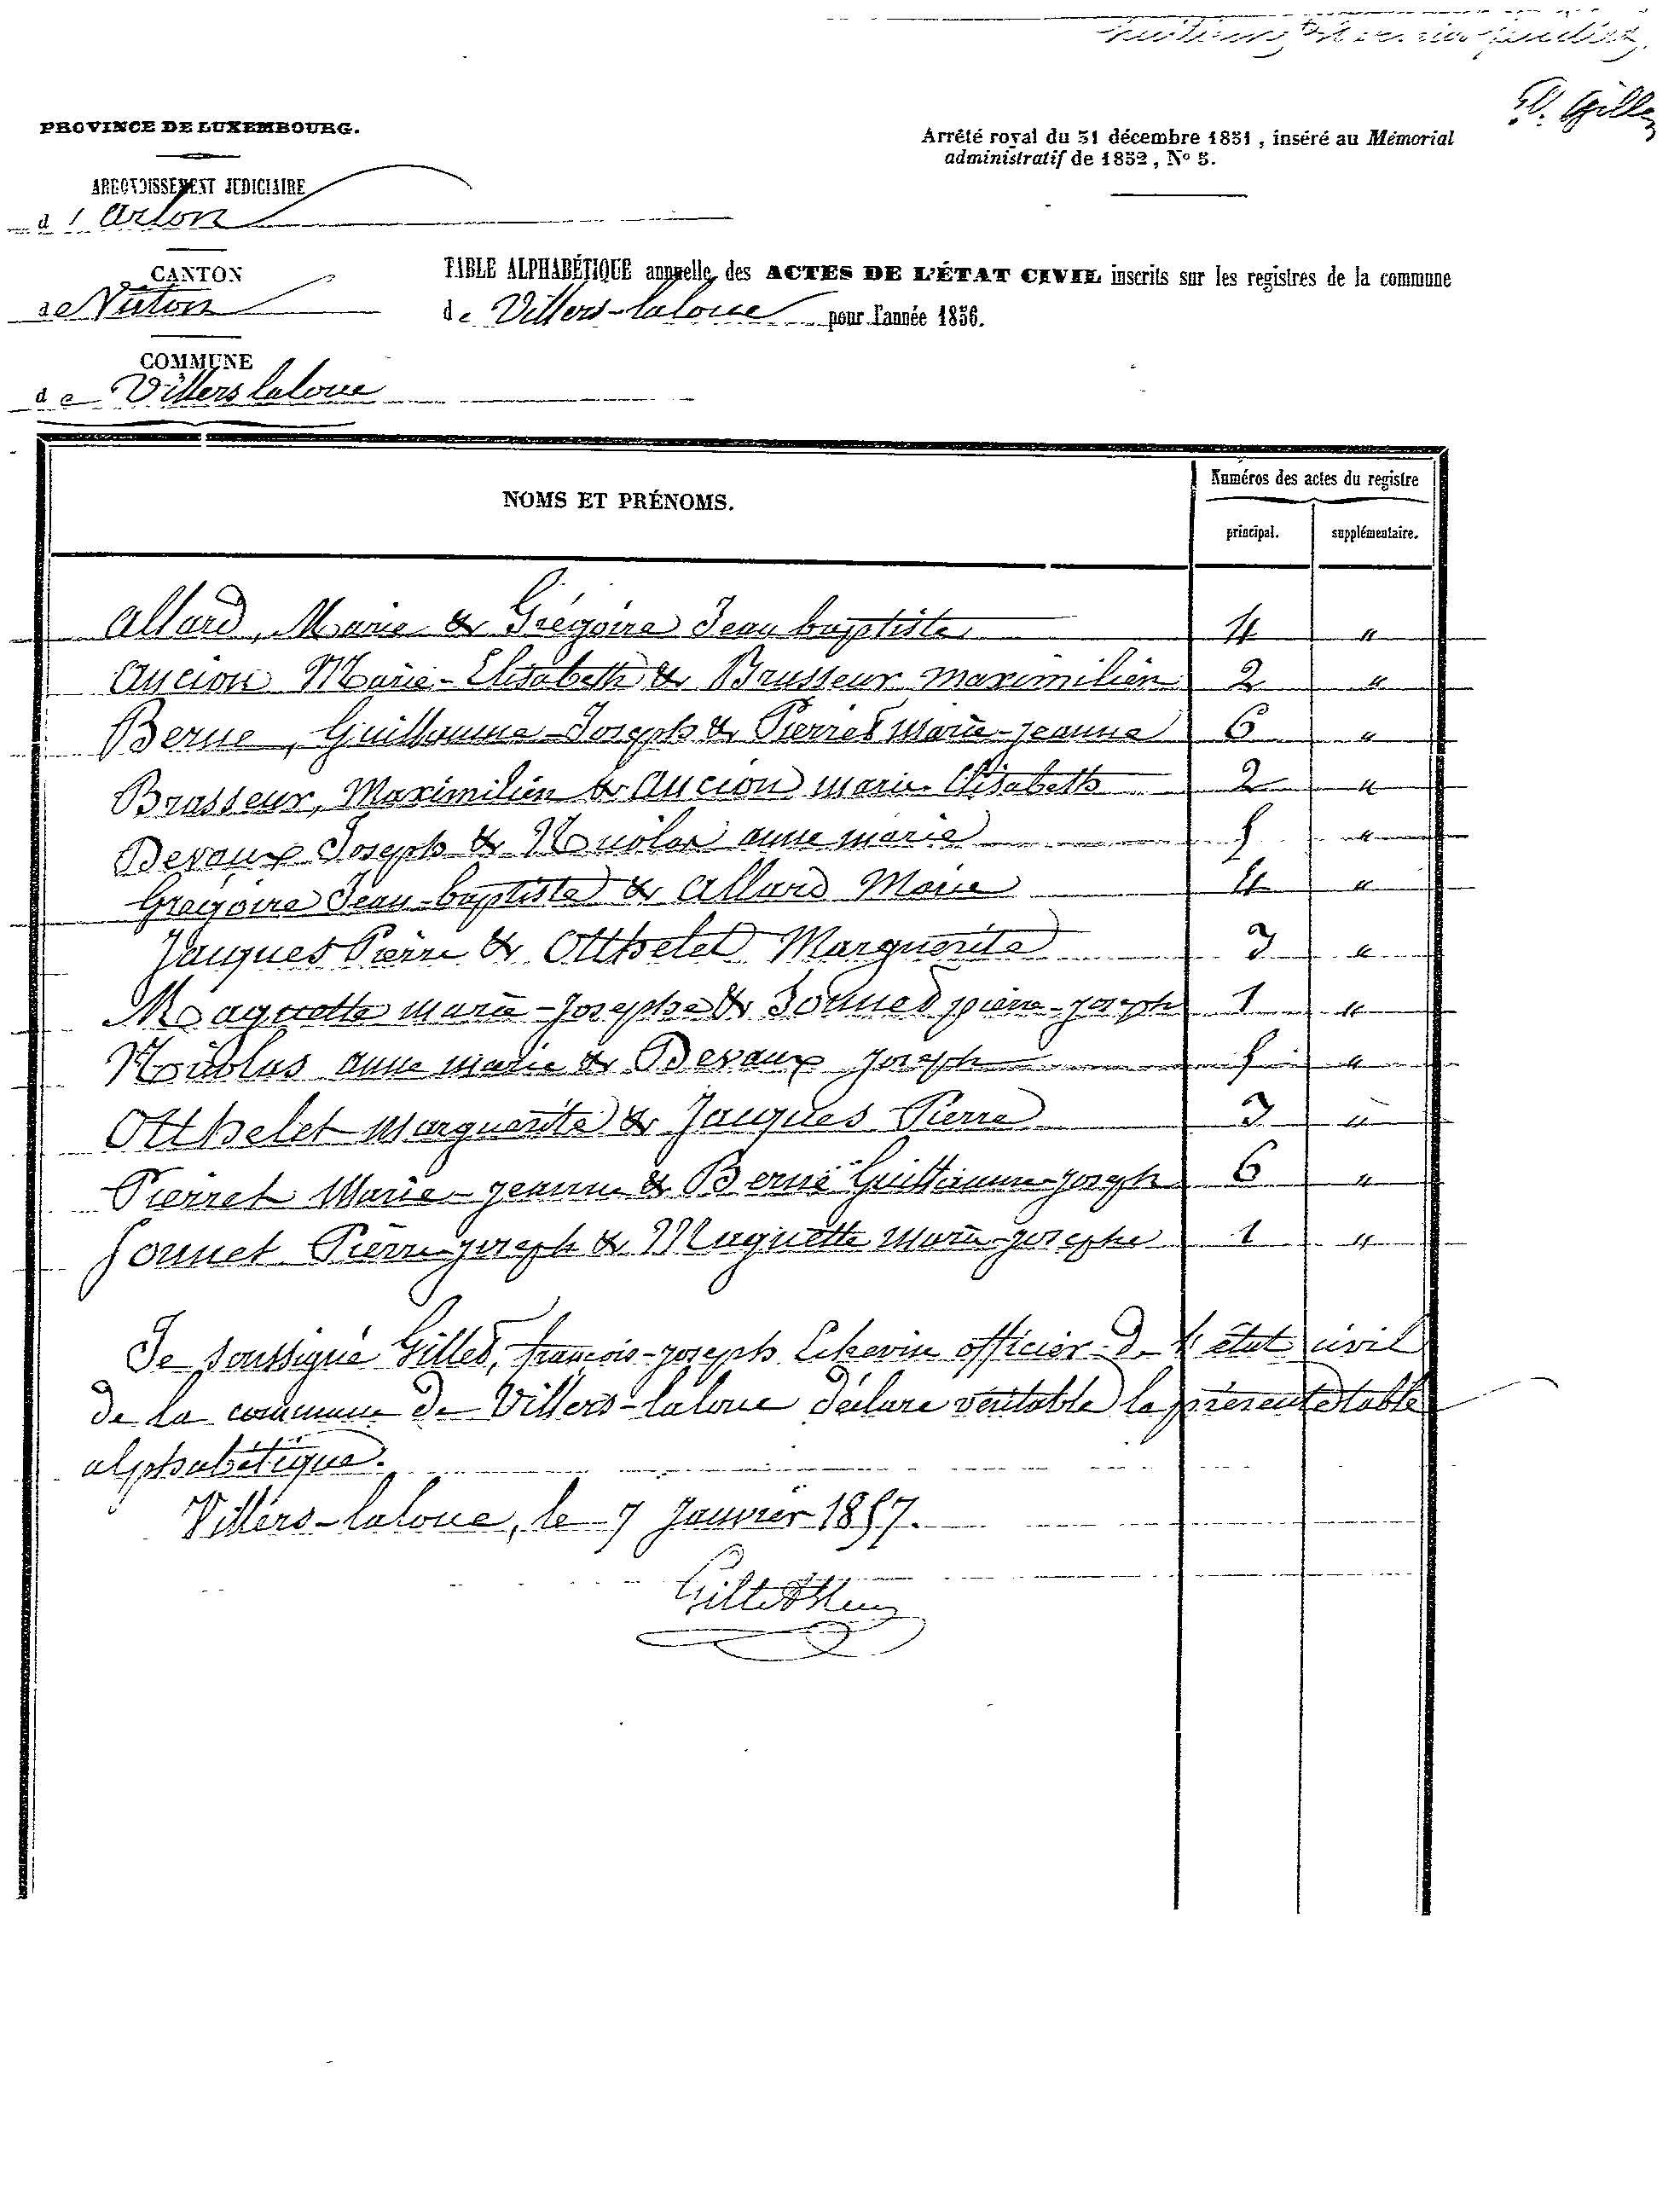 J. Gilles
PROVINCE DE LUXEMBOURG.
Arrêté royal du 31 décembre 1831, inséré au Mémorial
administratif de 1832, No 3.
ARRONDISSEMENT JUDICIAIRE
d'Arlon
CANTON
de Virton
TABLE ALPHABÉTIQUE annuelle des ACTES DE L'ÉTAT CIVIL inscrits sur les registres de la commune
de Villers-laloue pour l'année 1856.
COMMUNE
de Villers laloue
NOMS ET PRÉNOMS.
Numéros des actes du registre
principal.
supplémentaire.
Allard, Marie & Grégoire Jean baptiste 4 "
Aucion Marie-Elisabeth & Brasseur maximilien 2 "
Berne, Guillaume-Joseph & Pierret marie-jeanne 6 "
Brasseur, Maximilien & Aucion marie-Elisabeth 2 "
Devaux Joseph & Nicolas anne marie 5 "
Grégoire Jean-baptiste & Allard Marie 4 "
Jacques Pierre & Otthelet Marguerite 3 "
Maquette marie-josephe & Sonnet pierre-joseph 1 "
Nicolas anne marie & Devaux joseph 5 "
Otthelet marguerite & Jacques Pierre 3 "
Pierret Marie-jeanne & Berne Guillaume-joseph 6 "
Sonnet Pierre-joseph & Maquette marie-josephe 1 "
Je soussigné Gilles, françois-joseph Echevin officier de l'état civil
de la commune de Villers-laloue déclare véritable la présente table
alphabétique.
Villers-laloue, le 7 Janvier 1857.